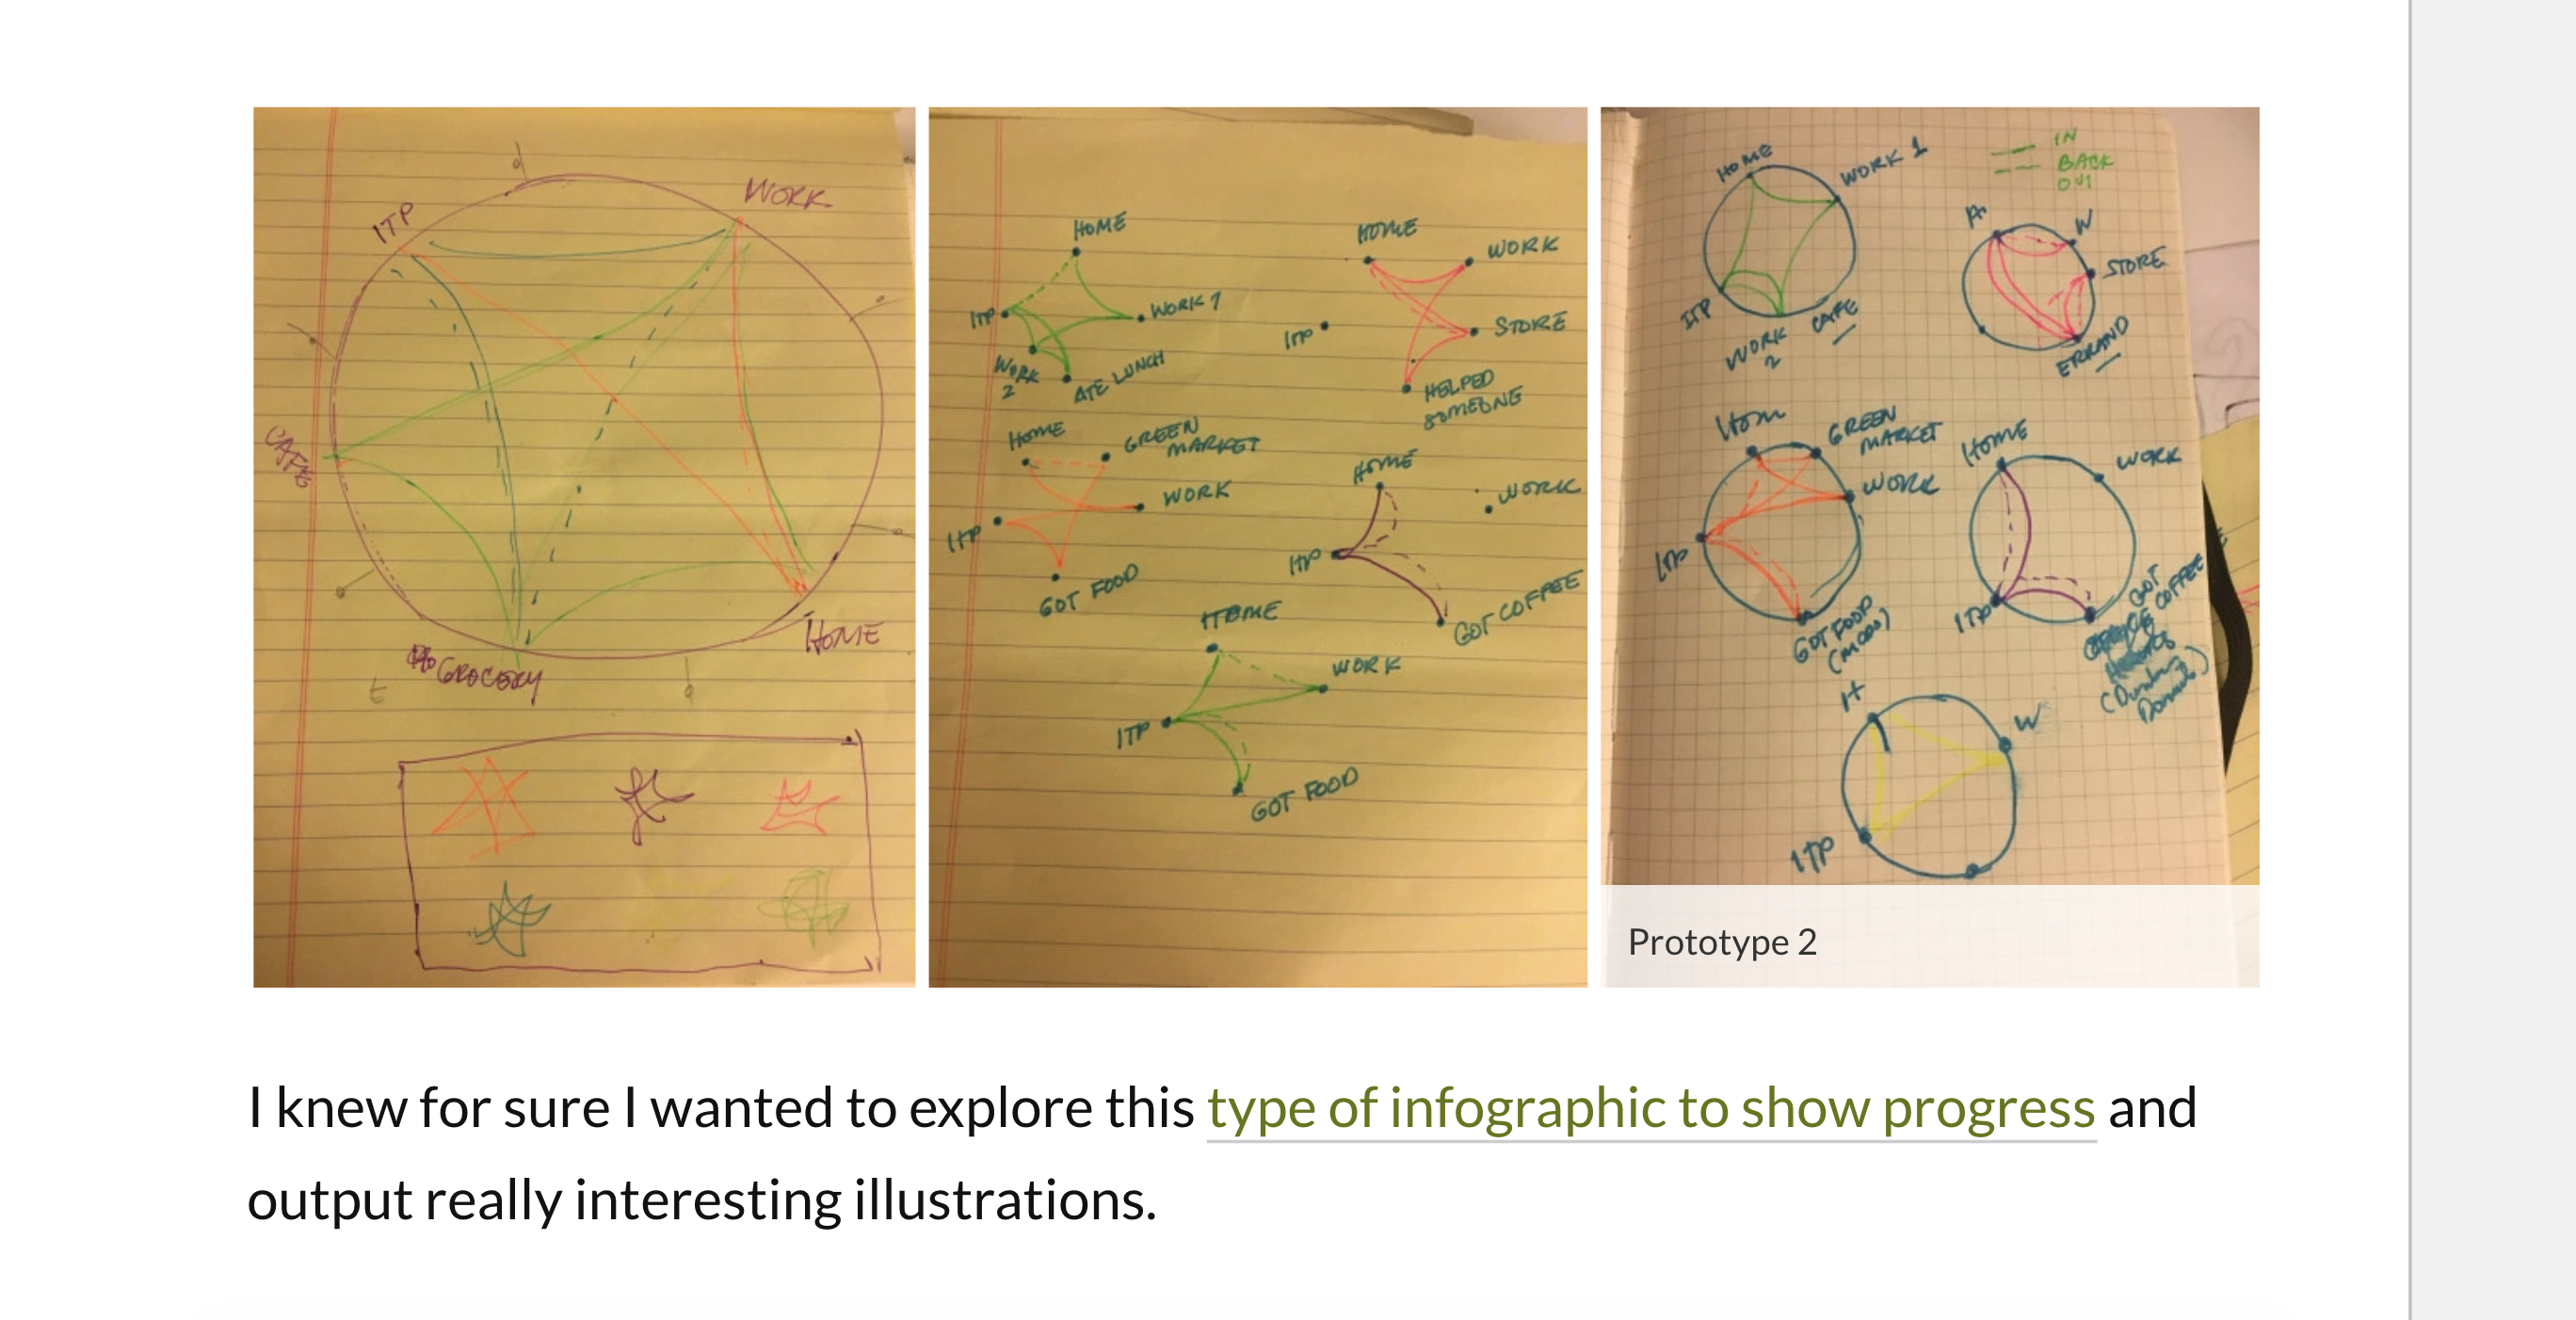 WORK
ITP
CAFE
HOME
GROCERY
HOME
ITP
WORK 1
WORK
2
ATE LUNCH
HOME
WORK
ITP
STORE
HELPED
SOMEONE
HOME
GREEN
MARKET
WORK
ITP
GOT FOOD
HOME
WORK
ITP
GOT COFFEE
HOME
WORK
ITP
GOT FOOD
HOME
WORK 1
IN
BACK
OUT
ITP
WORK
2
CAFE
W
STORE
ERRAND
Hom
GREEN
MARKET
WORK
ITP
GOT FOOD
HOME
WORK
ITP
GOT
COFFEE
H
W
ITP
Prototype 2
I knew for sure I wanted to explore this type of infographic to show progress and
output really interesting illustrations.